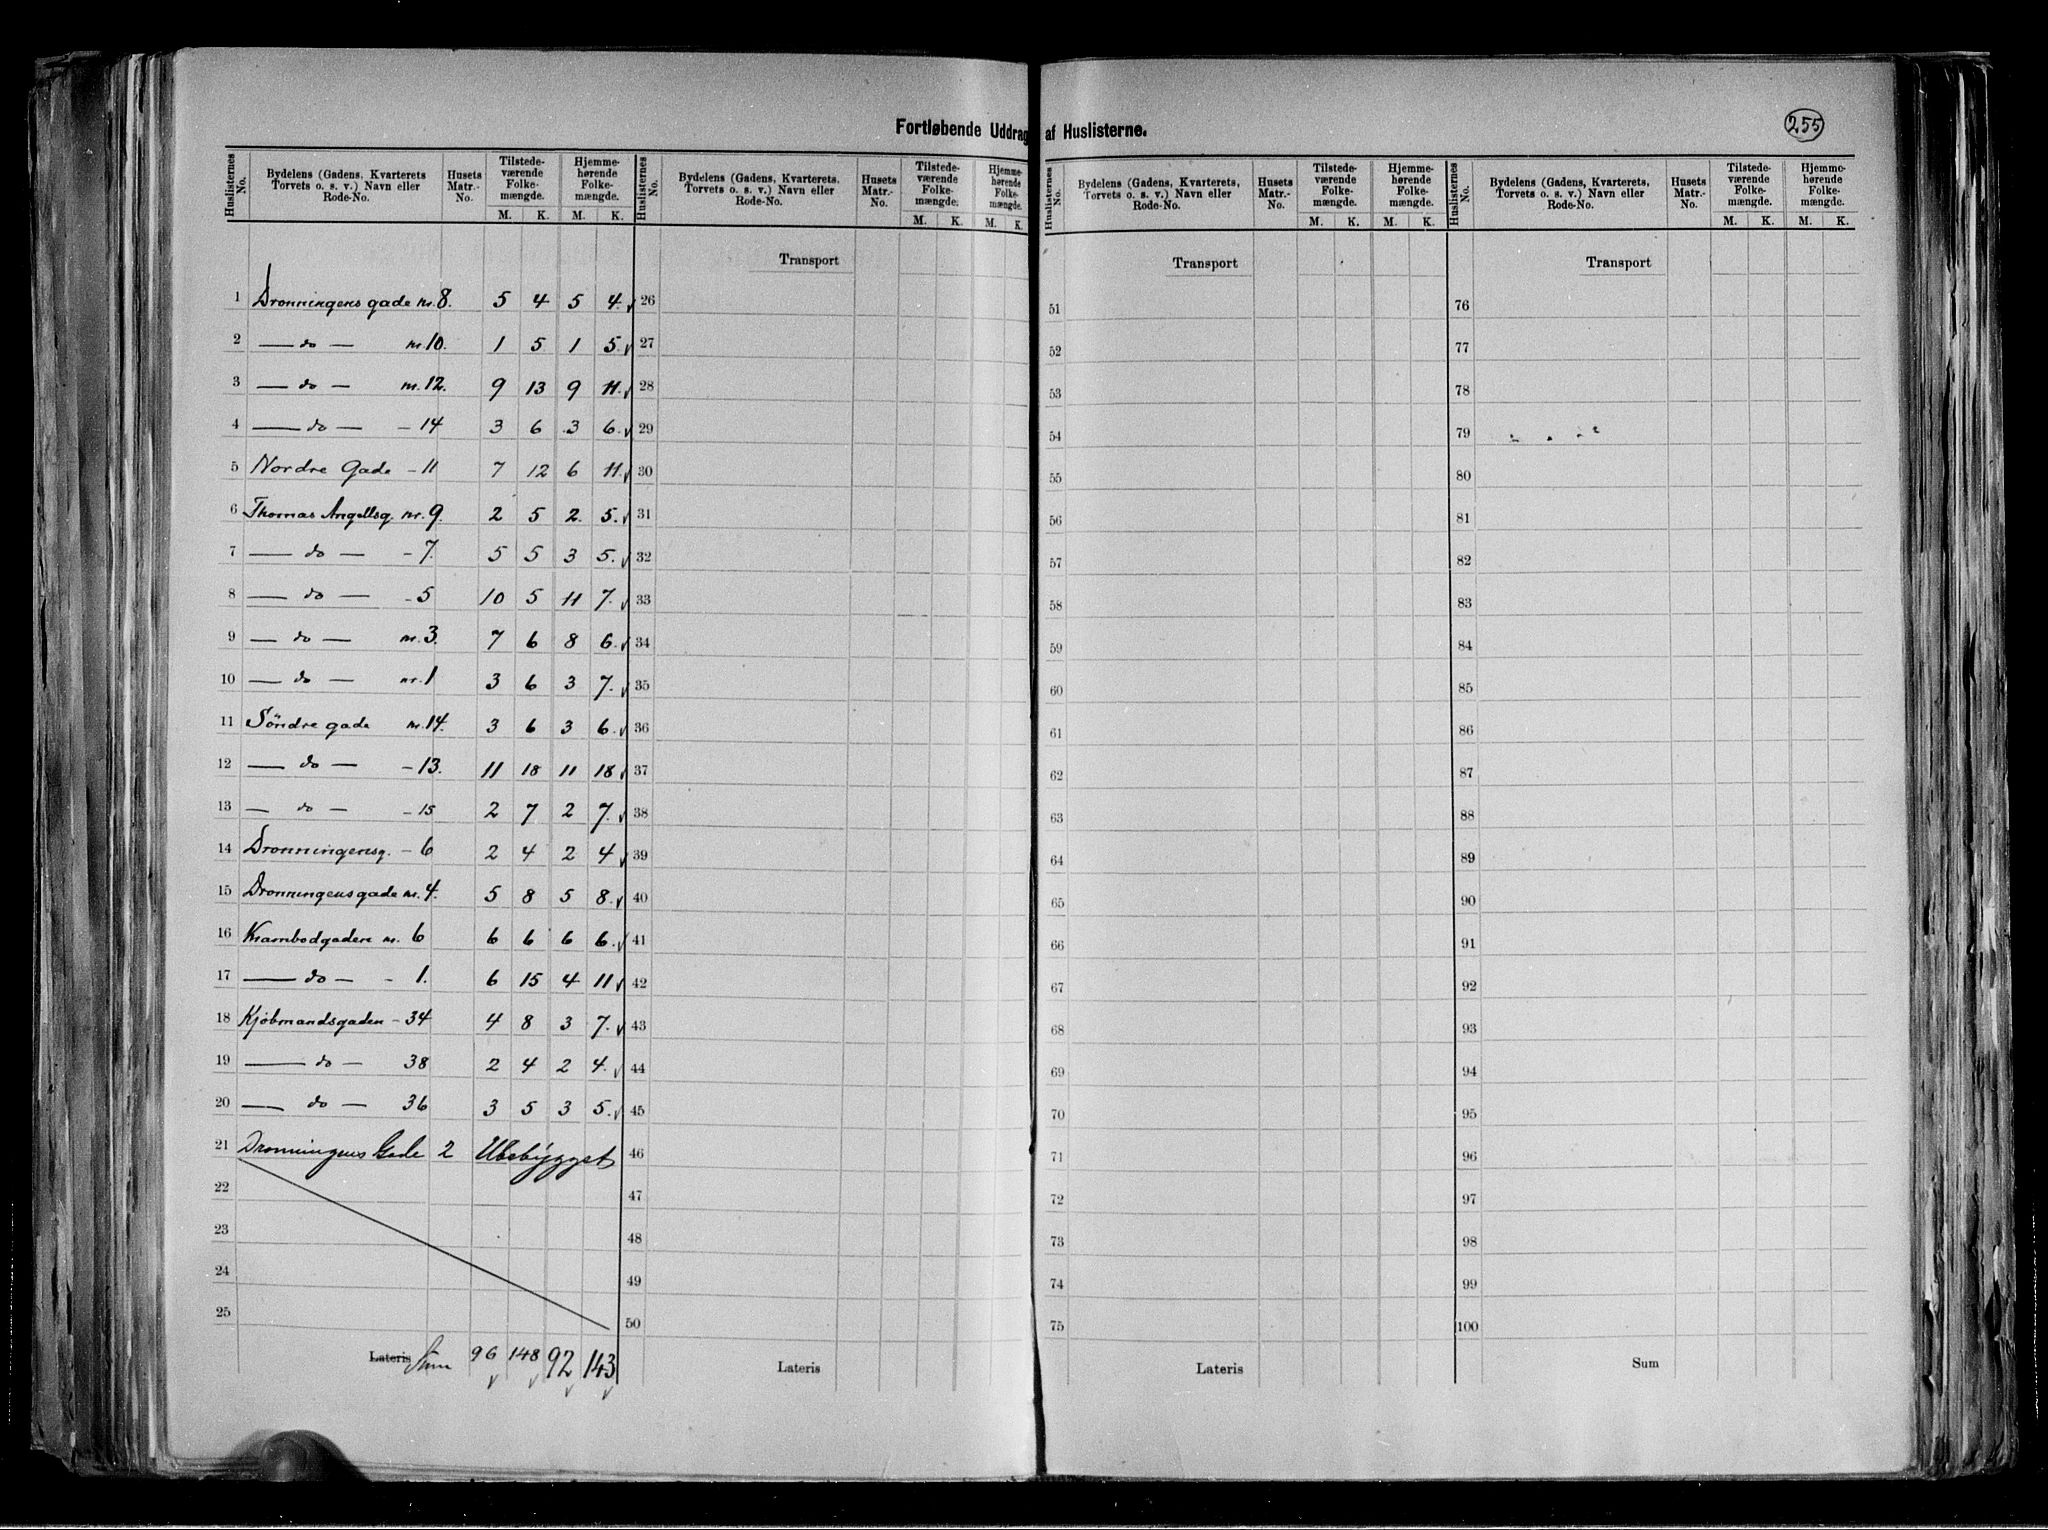 Fortløbende Uddrag af Huslisterne.
255
Huslisternes No. Bydelens (Gadens, Kvarterets Torvets o. s. v.) Navn eller Rode-No. Husets Matr.-No. Tilstedeværende Folkemængde. M. K. Hjemmehørende Folkemængde. M. K.
Huslisternes No. Bydelens (Gadens, Kvarterets, Torvets o. s. v.) Navn eller Rode-No. Husets Matr.-No. Tilstedeværende Folkemængde. M. K. Hjemmehørende Folkemængde. M. K.
Huslisternes No. Bydelens (Gadens, Kvarterets, Torvets o. s. v.) Navn eller Rode-No. Husets Matr.-No. Tilstedeværende Folkemængde. M. K. Hjemmehørende Folkemængde. M. K.
Huslisternes No. Bydelens (Gadens, Kvarterets, Torvets o. s. v.) Navn eller Rode-No. Husets Matr.-No. Tilstedeværende Folkemængde. M. K. Hjemmehørende Folkemængde. M. K.
Transport Transport Transport
1 Dronningens gade nr. 8. 5 4 5 4. 26 51 76
2 — do — nr. 10. 1 5 1 5. 27 52 77
3 — do — nr. 12. 9 13 9 11. 28 53 78
4 — do — - 14 3 6 3 6. 29 54 79
5 Nordre Gade - 11 7 12 6 11. 30 55 80
6 Thomas Angellsg. nr. 9. 2 5 2. 5. 31 56 81
7 — do — - 7. 5 5 3 5. 32 57 82
8 — do — - 5 10 5 11 7. 33 58 83
9 — do — nr. 3. 7 6 8 6. 34 59 84
10 — do — nr. 1 3 6 3 7. 35 60 85
11 Søndre gade nr. 14. 3 6 3 6. 36 61 86
12 — do — - 13. 11 18 11 18 37 62 87
13 — do — - 15 2 7 2 7. 38 63 88
14 Dronningensg. - 6 2 4 2 4 39 64 89
15 Dronningensgade nr. 4. 5 8 5 8. 40 65 90
16 Krambodgaden nr. 6 6 6 6 6. 41 66 91
17 — do — - 1. 6 15 4 11 42 67 92
18 Kjøbmandsgaden - 34 4 8 3 7. 43 68 93
19 — do — 38 2 4 2 4. 44 69 94
20 — do — 36 3 5 3 5. 45 70 95
21 Dronningens Gade 2 Ubebygget 46 71 96
22 47 72 97
23 48 73 98
24 49 74 99
25 50 75 100
Lateris Sum 96 148 92 143 Lateris Lateris Sum